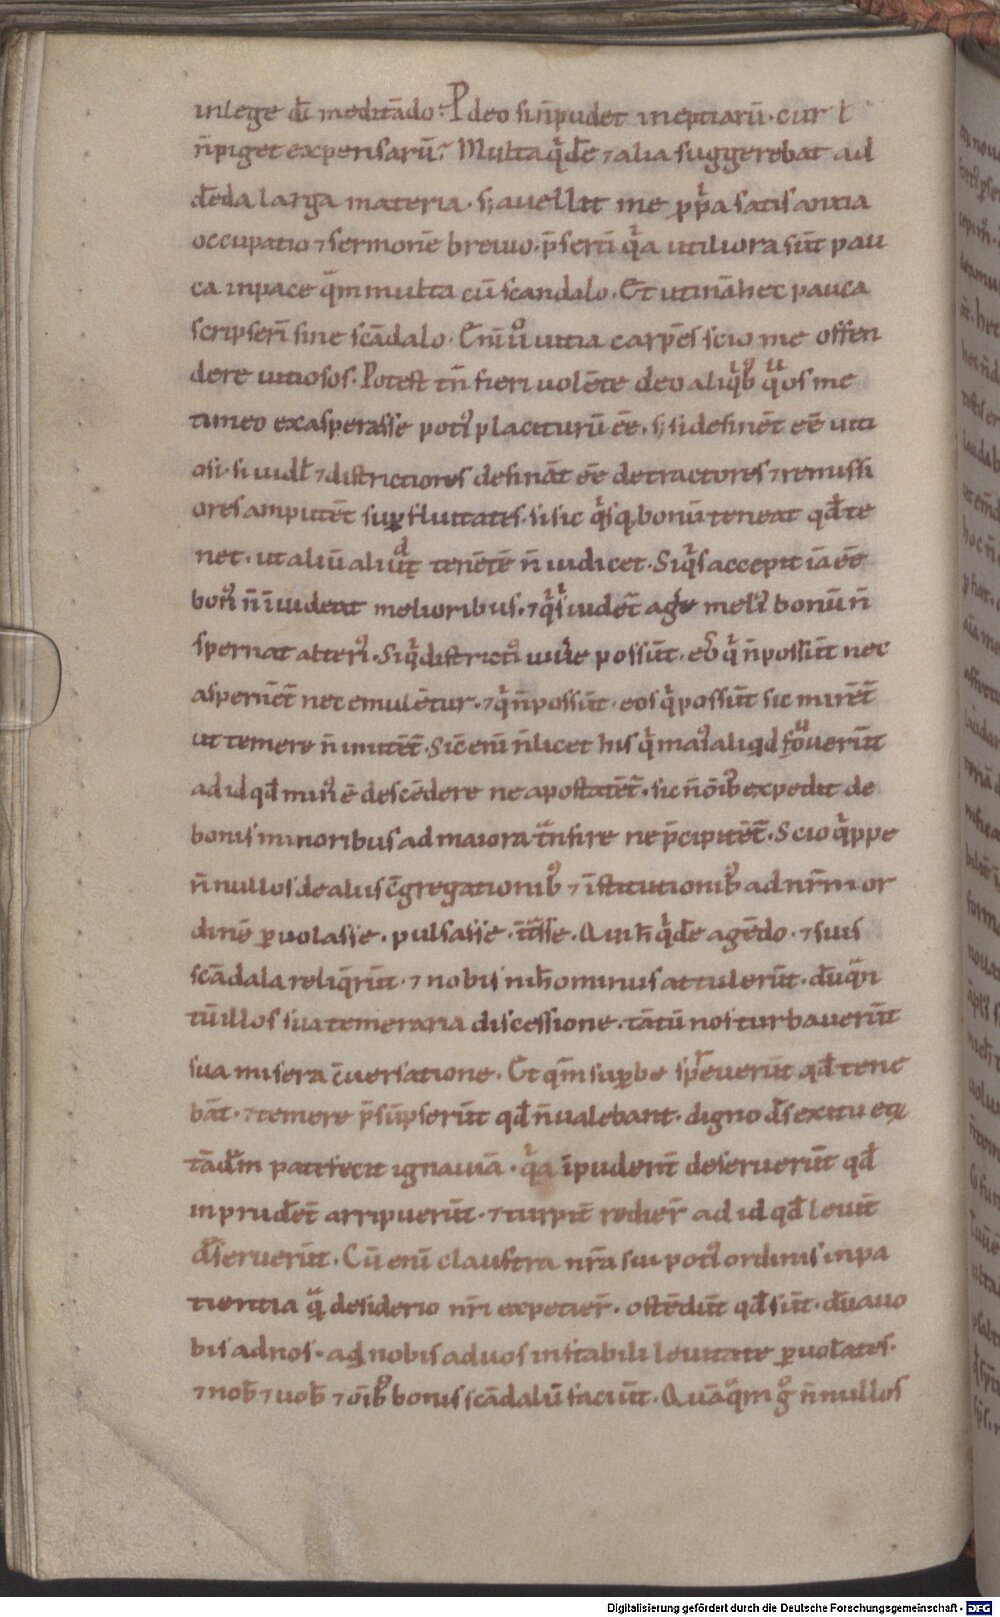 inlege dī meditādo? Pdeo sin̄pudet ineptiarū. cur l̄
n̄piget expensarū? Multa qͥdē ⁊alia suggerebat ad
dēda larga materia. sꝫ auellit me ꝓpͥa satis anxia
occupatio ⁊ sermonē breuio. p̄sertī qͥa utiliora sūt pau
ca inpace qͣ̄m multa cū scandalo. Et utinā hec pauca
scripserī sine scādalo. Enīuͦ uitia carpēs scio me offen
dere uitiosos. Potest tn̄ fieri uolēte deo aliqͥbꝰ qͦs me
timeo exasperasse potiꝰ placiturū eē. sꝫ si definēt eē uiti
osi. si uidl̄ ⁊districtiores desināt eē detractores ⁊remissi
ores amputēt suꝑfluitates. si sic qͥsqꝫ bonū teneat qd̄ te
net. ut aliū aliud tenētē n̄ iudicet. Si qͥs accepit iā eē
bonꝰ n̄ īuideat melioribus. ⁊ qͥ s̄ uidet̄ agere meliꝰ bonū n̄
spernat alteriꝰ. Si qͥ districtiꝰ uiuͤe possūt. eos qͥ n̄possūt nec
aspernēt̄ nec emulētur. ⁊ qͥ n̄possūt. eos qͥ possūt sic mirēt̄
ut temere n̄ imitēt̄. Sic̄ enī n̄licet his qͥ maiꝰ aliqd fo uouerūt
ad id qd̄ minꝰ ē descēdere ne apostatēt̄. sic n̄ōibꝰ expedit de
bonis minoribus ad maiora tͣnsire ne p̄cipitēt̄. Scio qͥppe
n̄nullos de aliis c̄gregationibꝰ ⁊ īstitutionibꝰ ad nr̄m or
dinē ꝑuolasse. pulsasse. ītͣsse. Qui h̄ qͥdē agēdo. ⁊ suis
scādala reliq̄rūt. ⁊ nobis nih̄ominus attulerūt. dū qͣn
tū illos sua temeraria discessione. tātū nos turbauerūt
sua misera c̄uersatione. Et qm̄ suꝑbe spreuerūt qd̄ tene
bāt. ⁊temere p̄sūpserūt qd̄ n̄ualebant. digno d̄s exitu eoꝝ
tādē patefecit ignauiā. qͥa īpudent̄ deseruerūt qd̄
inprudēt̄ arripuerūt. ⁊ turpit̄ redier̄ ad id qd̄ leuit̄
d̄seruerūt. Cū enī claustra nr̄a sui potiꝰ ordinis inpa
tientia qͣ̄ desiderio nr̄i expetier̄. ostēdūt qd̄ sūt. dū auo
bis adnos. ad nobis aduos instabili leuitate ꝑuolātes.
⁊ nob̄ ⁊ uob̄ ⁊ ōibꝰ bonis scādalū faciūt. Quāqͣm gͦ n̄nullos
Digitalisierung gefördert durch die Deutsche Forschungsgemeinschaft - DFG